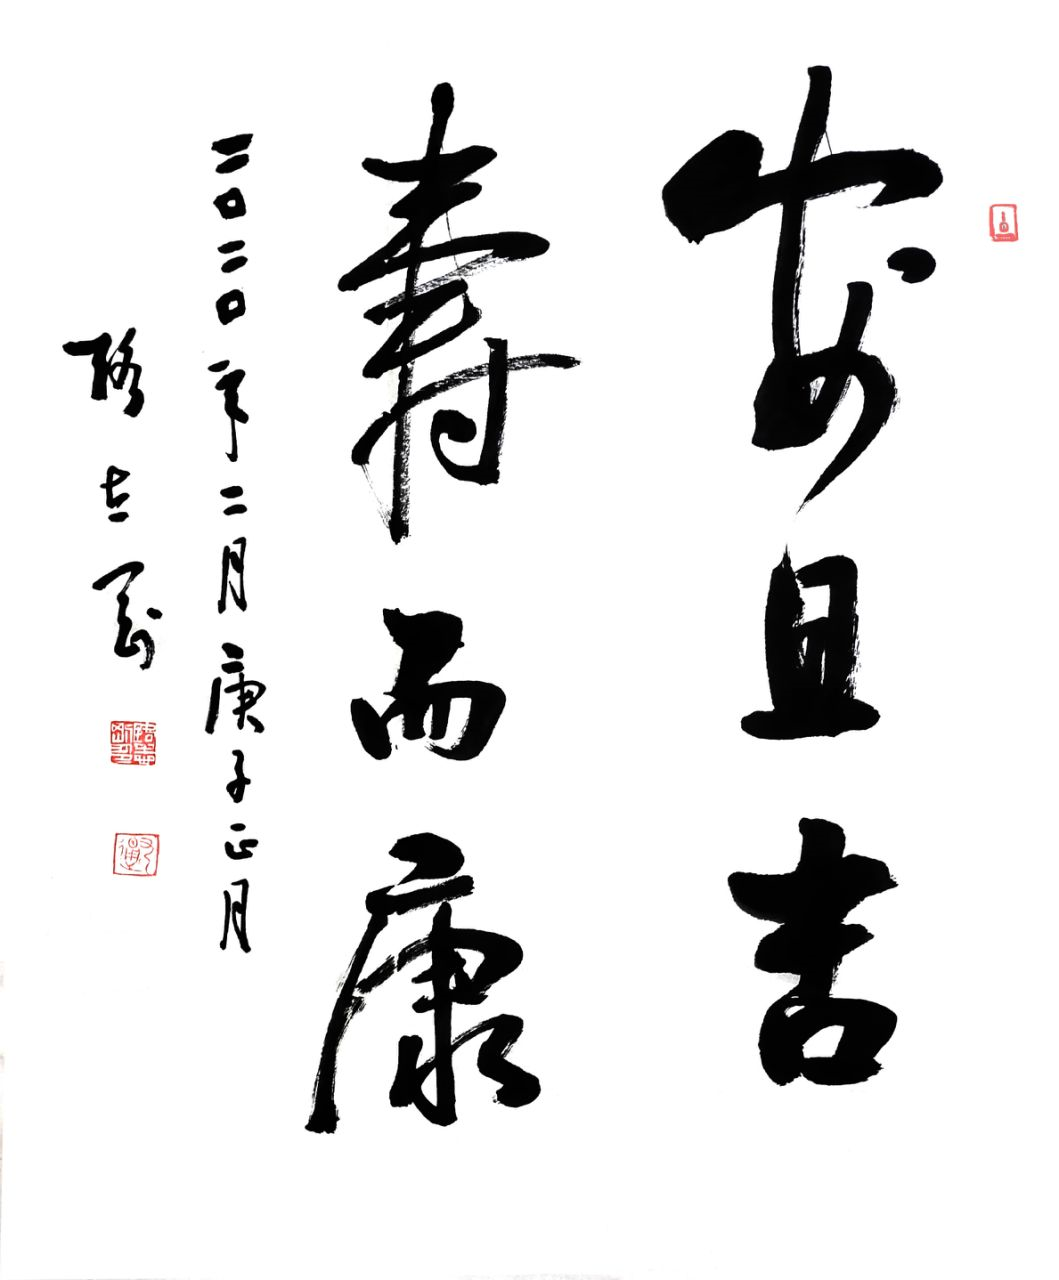 安且吉
壽而康
二〇二〇年二月庚子正月